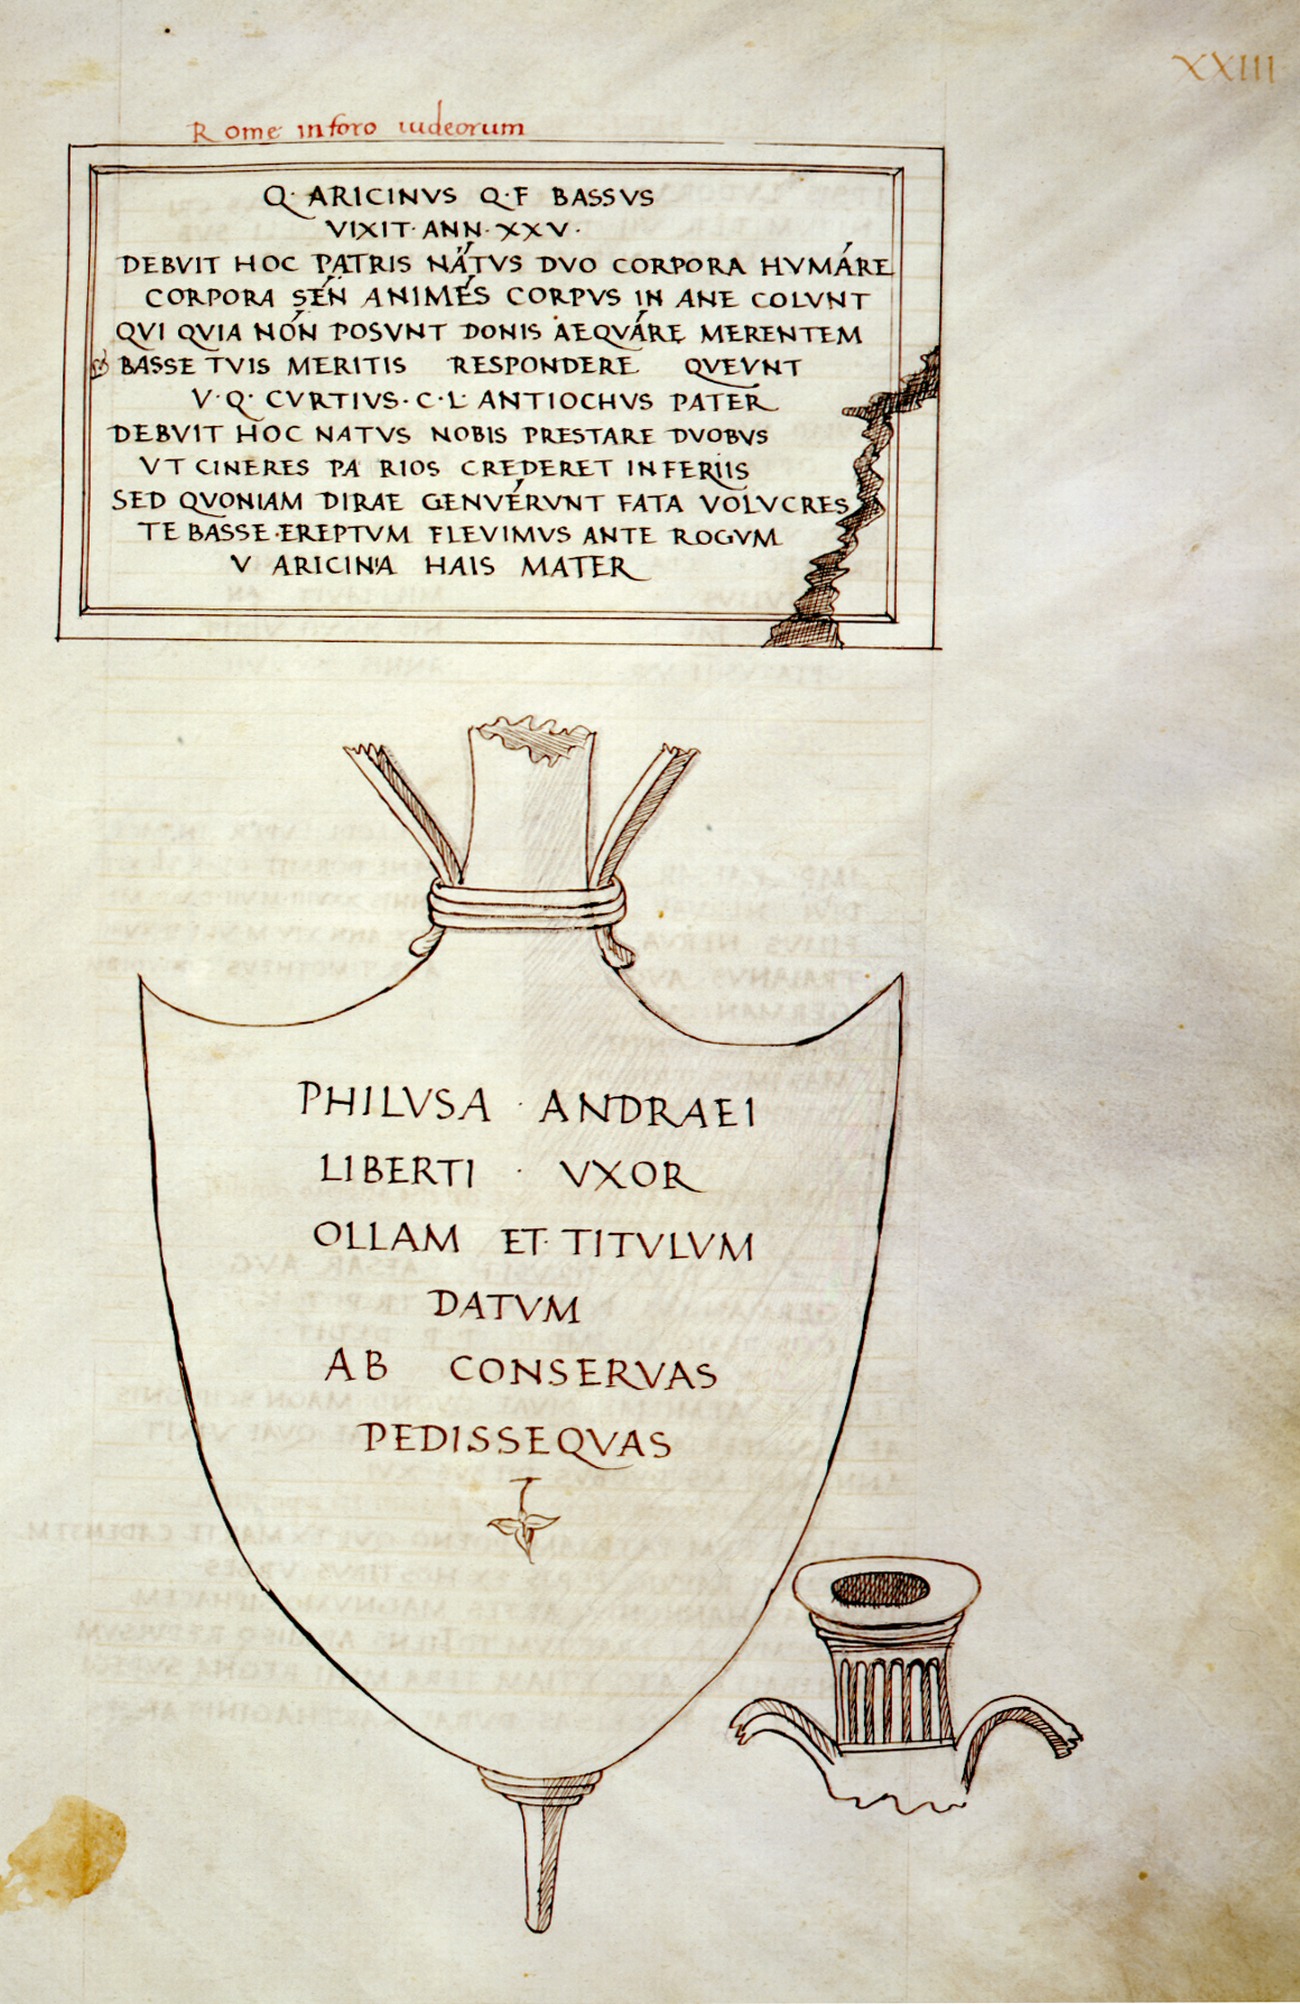 XXIII
Rome in foro iudeorum
Q· ARICINVS Q·F BASSVS
VIXIT· ANN· XXV·
DEBVIT HOC PATRIS NÁTVS DVO CORPORA HVMÁRE
CORPORA SÉN ANIMÉS CORPVS IN ANE COLVNT
QVI QVIA NÓN POSVNT DONIS AEQVÁRE MERENTEM
BASSE TVIS MERITIS RESPONDERE QVEVNT
V·Q· CVRTIVS· C·L· ANTIOCHVS PATER
DEBVIT HOC NATVS NOBIS PRESTARE DVOBVS
VT CINERES PA RIOS CREDERET INFERIIS
SED QVONIAM DIRAE GENVÉRVNT FATA VOLVCRES
TE BASSE·EREPTVM FLEVIMVS ANTE ROGVM
V ARICINA HAIS MATER
PHILVSA · ANDRAEI
LIBERTI · VXOR
OLLAM ET· TITVLVM
DATVM
AB CONSERVAS
PEDISSEQVAS